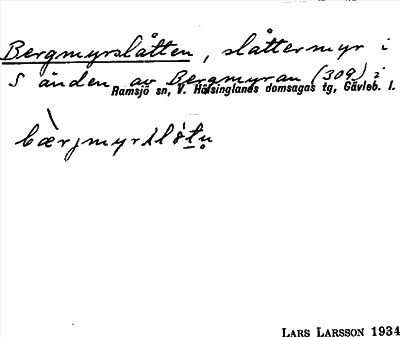 Bergmyrslåtten, slåttermyr i
S änden av Bergmyran (309) i
Ramsjö sn, V. Hälsinglands domsagas tg, Gävleb. l.
bærjmyrslòtn̥
LARS LARSSON 1934